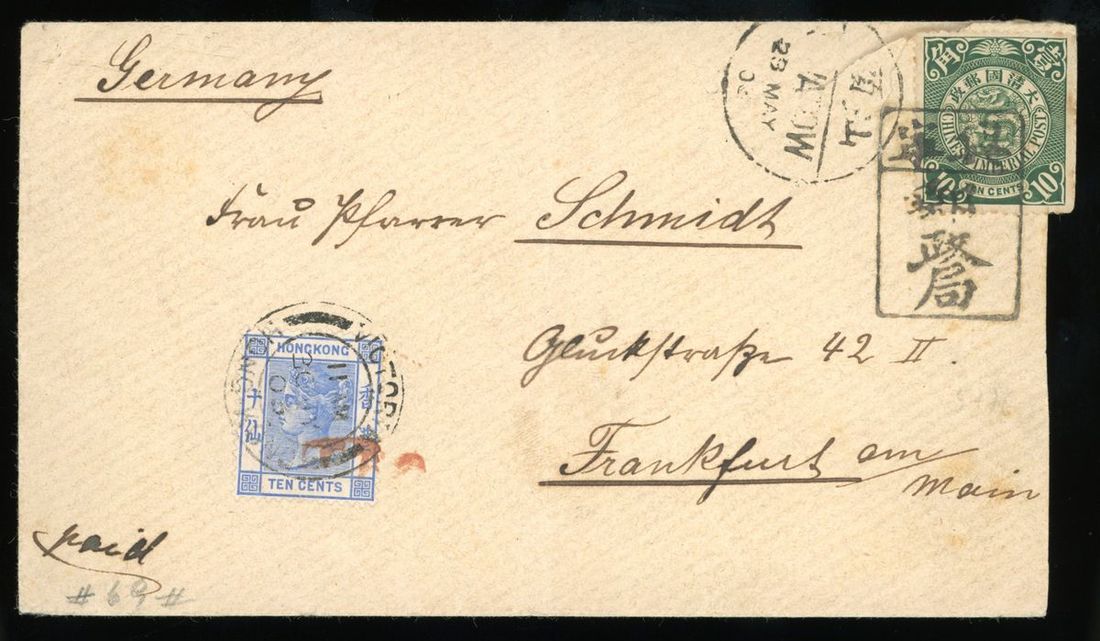 Germany
Frau Pfarrer Schmidt
Gluckstraße 42 II
Frankfurt am
Main
paid
#69#
23 MAY
大清國郵政
壹
角
CHINESE IMPERIAL POST
10 TEN CENTS 10
郵
政
局
HONGKONG
香
十仙
TEN CENTS
11 AM